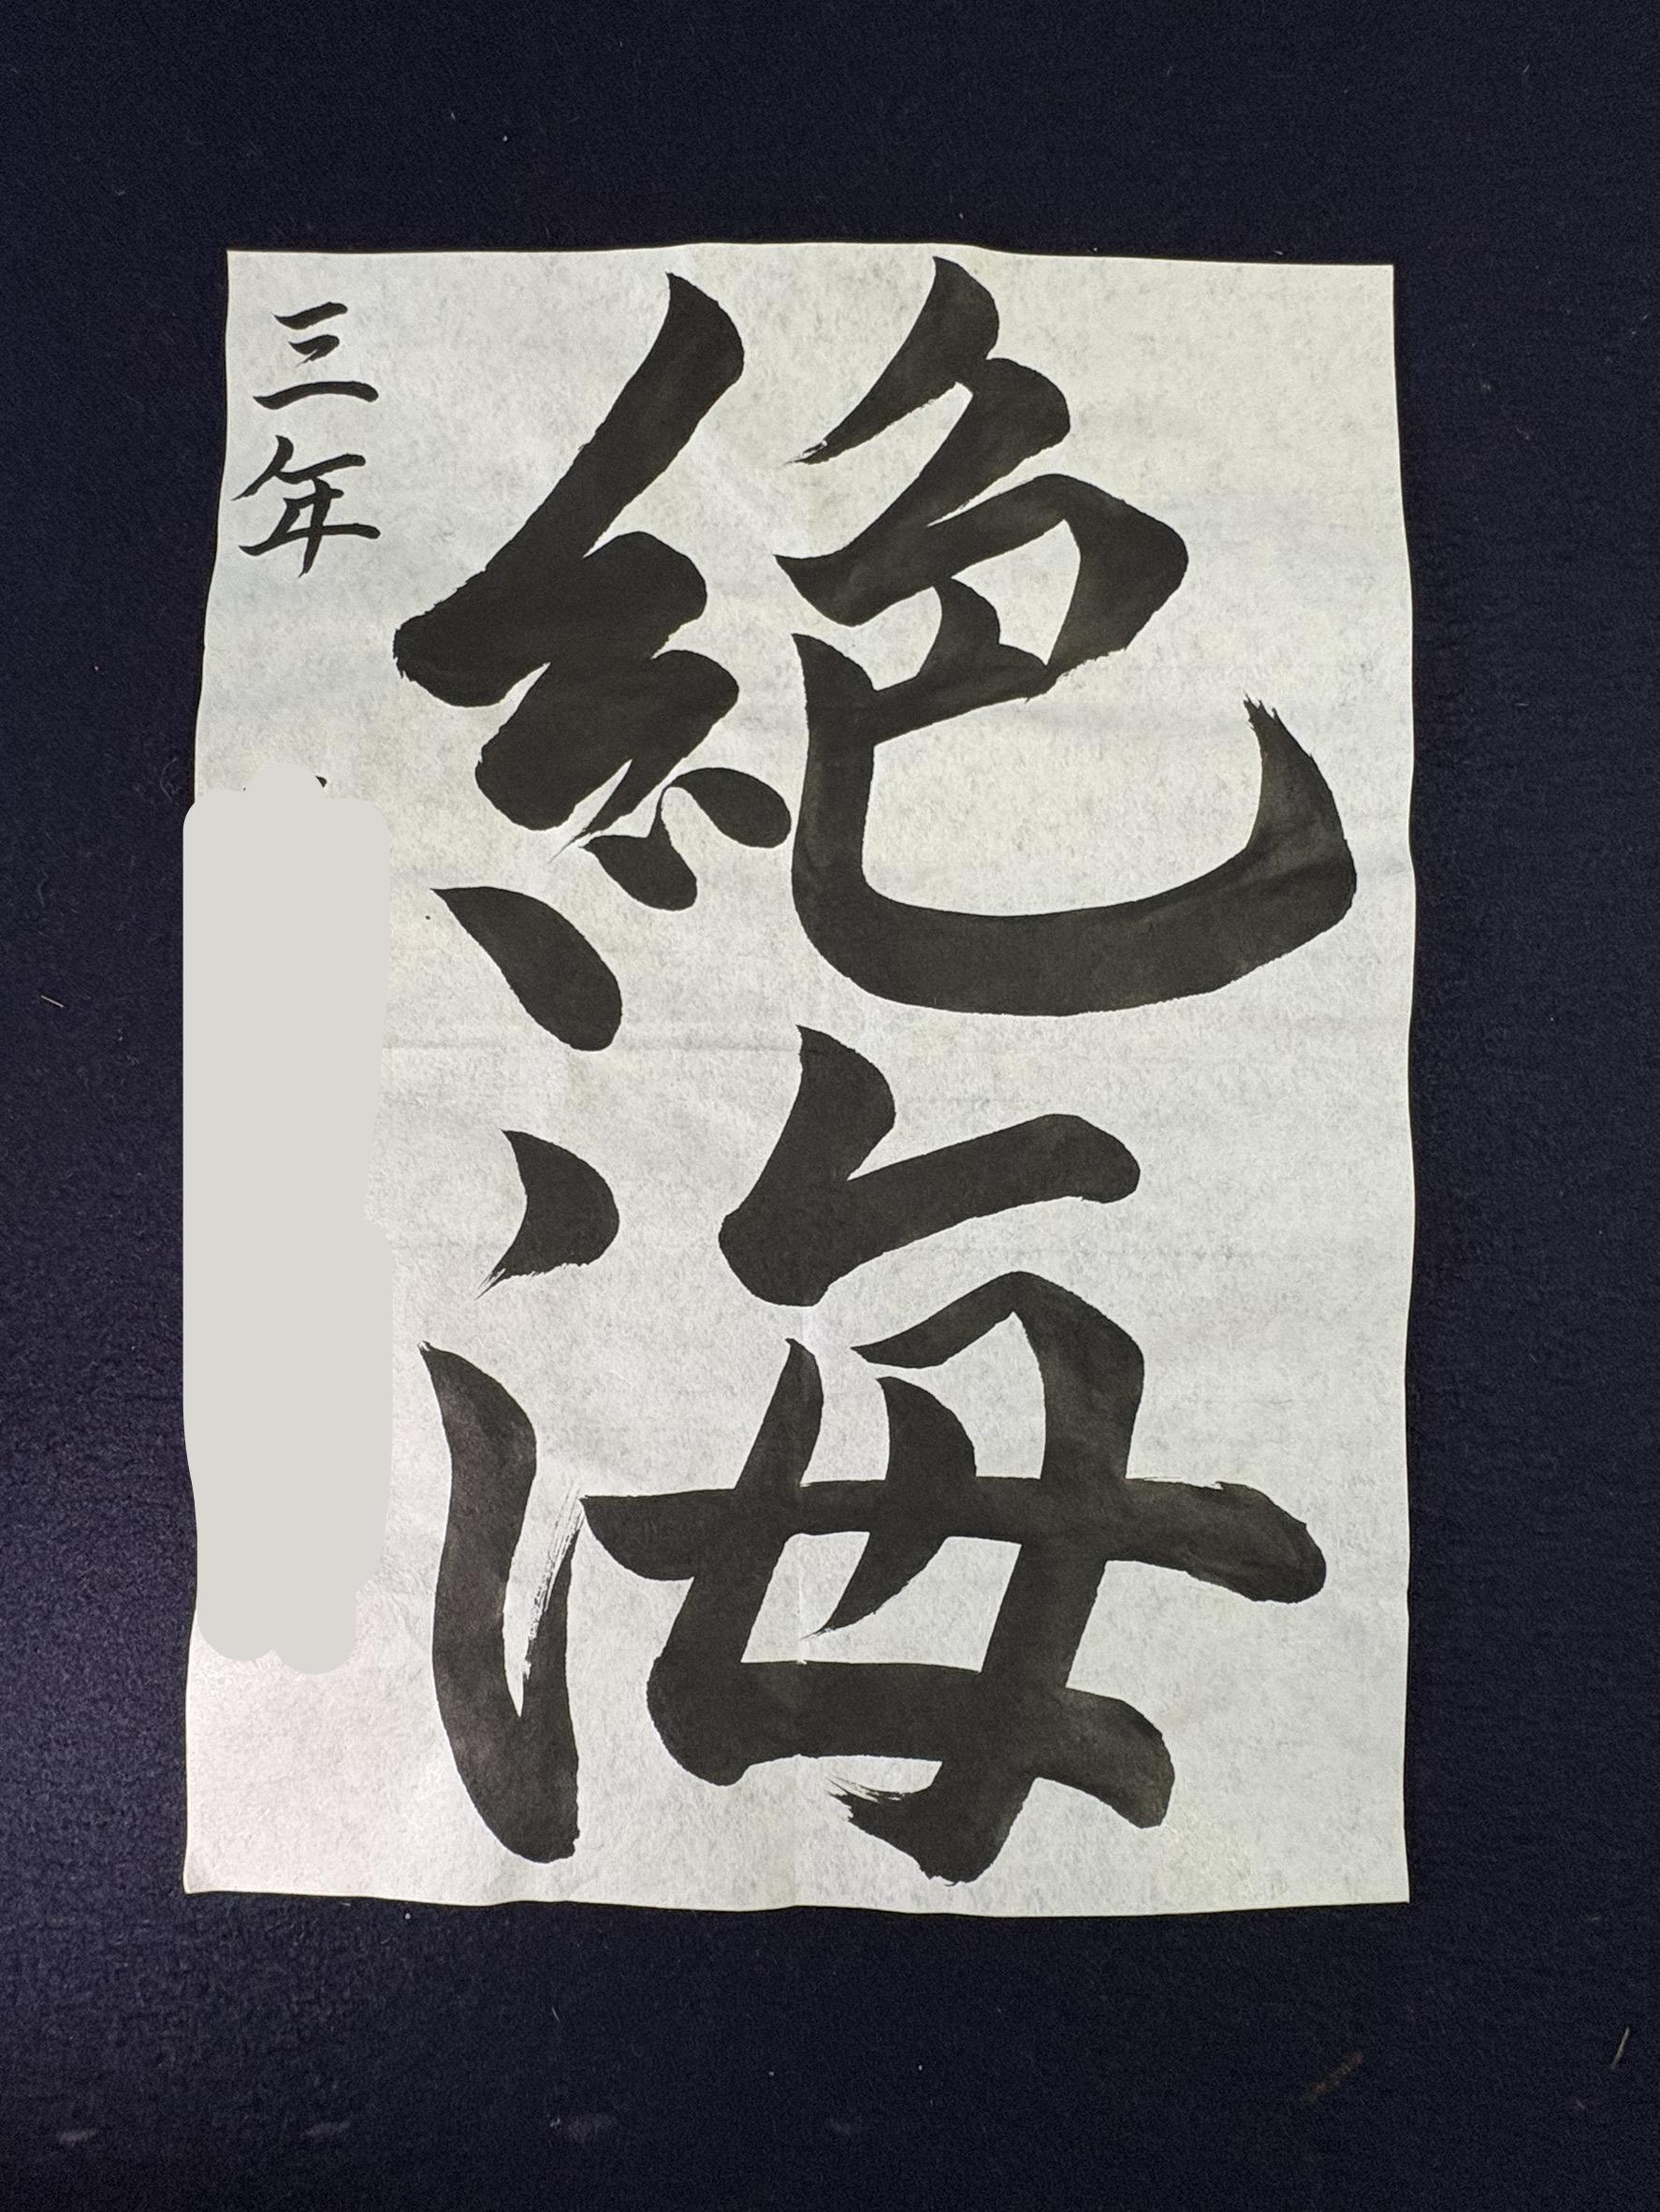 絶海
三年